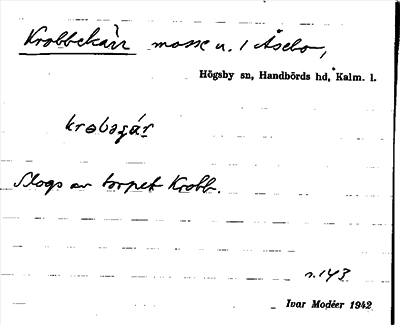 Krobbekärr mosse u. 1 Åsebo,
Högsby sn, Handbörds hd, Kalm. l.
Slogs av torpet Krobb.
s. 143
Ivar Modéer 1942